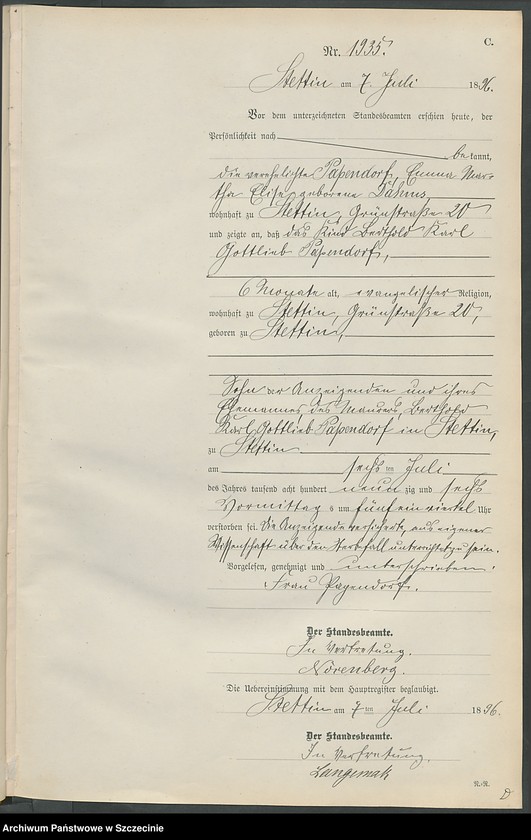 C.
Nr. 1935.
Stettin am 7. Juli 1896.
Vor dem unterzeichneten Standesbeamten erschien heute, der
Persönlichkeit nach
bekannt,
die verehelichte Papendorf, Emma Mar-
tha Elise geborene Dahms
wohnhaft zu Stettin, Grünstraße 20
und zeigte an, daß das Kind Berthold Karl
Gottlieb Papendorf,
6 Monate alt, evangelischer Religion,
wohnhaft zu Stettin, Grünstraße 20,
geboren zu Stettin,
Sohn der Anzeigenden und ihres
Ehemannes, des Maurers, Berthold
Karl Gottlieb Papendorf in Stettin,
zu Stettin
am sechsten Juli
des Jahres tausend acht hundert neunzig und sechs
Vormittags um fünf ein viertel Uhr
verstorben sei. Die Anzeigende versicherte, aus eigener
Wissenschaft über den Sterbfall unterrichtet zu sein.
Vorgelesen, genehmigt und unterschrieben:
Frau Papendorf.
Der Standesbeamte.
In Vertretung.
Nörenberg.
Die Uebereinstimmung mit dem Hauptregister beglaubigt.
Stettin am 7ten Juli 1896.
Der Standesbeamte.
In Vertretung.
Langemak
N.-R.
D
Archiwum Państwowe w Szczecinie